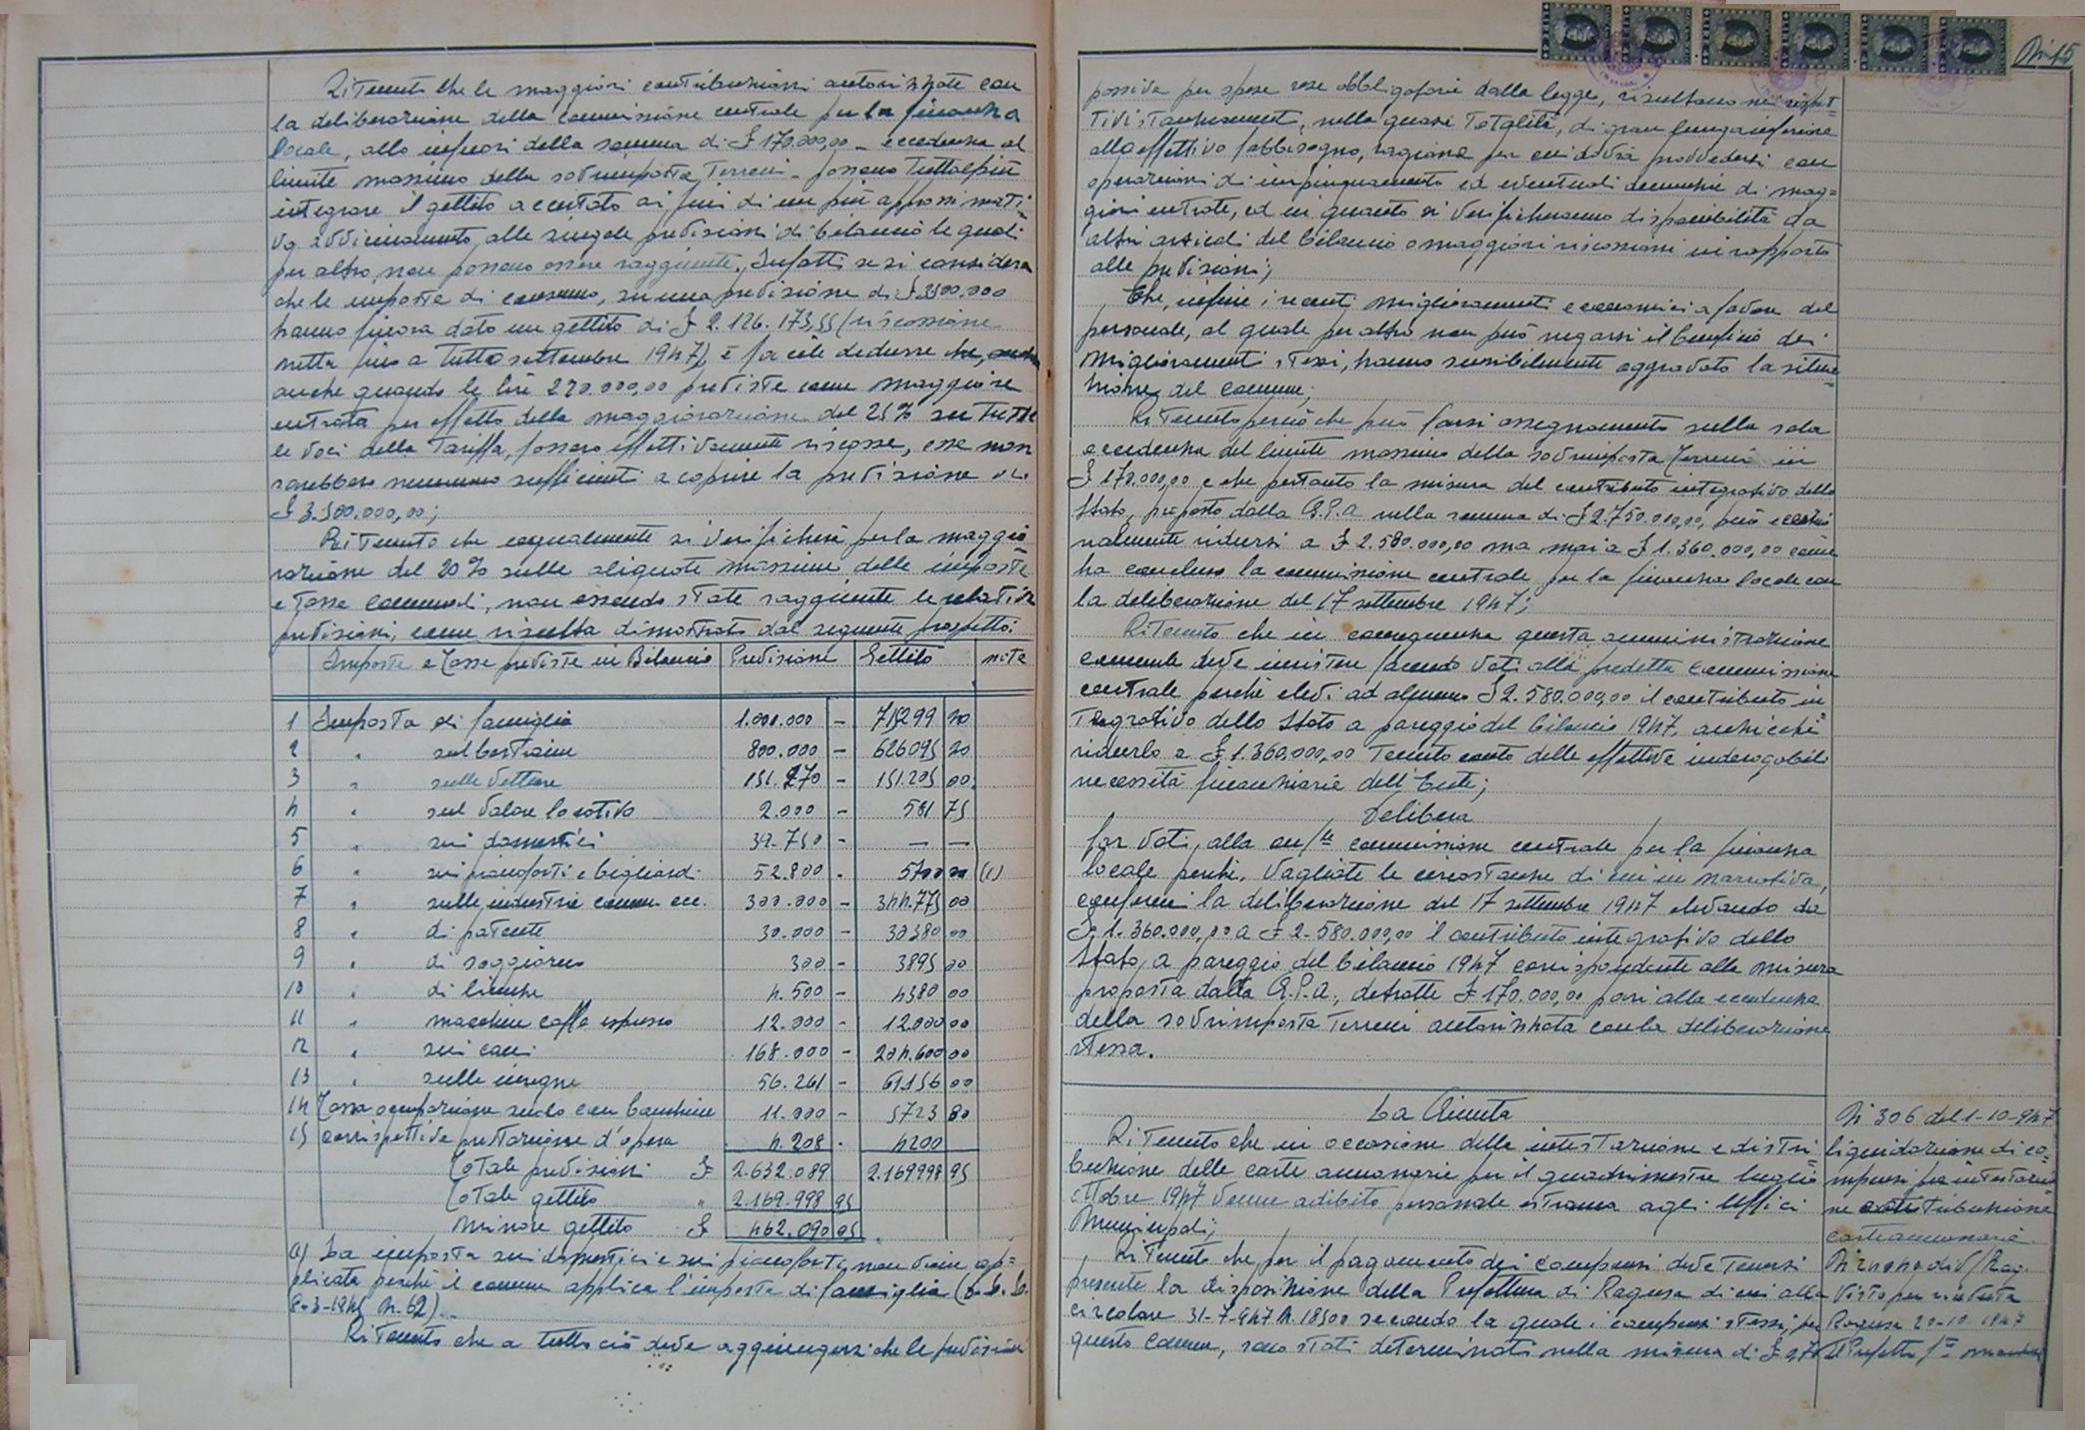 Ritenuto che le maggiori contribuzioni autorizzate con
la deliberazione della commissione centrale per la finanza
locale, allo infuori della somma di £ 170.000,00 - eccedenza al
limite massimo della sovrimposta Terreni - possono tuttalpiù
integrare il gettito accertato ai fini di un più approssimati=
vo avvicinamento alle singole previsioni di bilancio le quali
per altro non possono essere raggiunte. Infatti se si considera
che le imposte di consumo, su una previsione di £ 3500.000
hanno finora dato un gettito di £ 2.126.173,55 (riscossione
netta fino a tutto settembre 1947), è facile dedurre che,
anche quando le lire 270.000,00 previste come maggiore
entrata per effetto della maggiorazione del 25% su tutte
le voci della Tariffa, fossero effettivamente riscosse, esse non
sarebbero nemmeno sufficienti a coprire la previsione di
£ 3.500.000,00;
Ritenuto che ugualmente si verificherà per la maggio
razione del 20% sulle aliquote massime delle imposte
e Tasse Comunali, non essendo state raggiunte le relative
previsioni, come risulta dimostrato dal seguente prospetto:
Imposte e Tasse previste in Bilancio Previsione Gettito note
1 Imposta di famiglia 1.000.000 - 715299 20
2 " sul bestiame 800.000 - 626095 20
3 " sulle vetture 151.270 - 151.205 00
4 " sul valore locativo 2.000 - 581 75
5 " sui domestici 39.750 - — —
6 " sui pianoforti e bigliardi 52.800 - 5700 00 (1)
7 " sulle industrie comm. ecc. 300.000 - 344.775 00
8 " di patente 30.000 - 30380 00
9 " di soggiorno 300 - 3895 00
10 " di licenze 4.500 - 4380 00
11 " macchine caffè espresso 12.000 - 12.000 00
12 " sui cani 168.000 - 204.600 00
13 " sulle insegne 56.261 - 61.156 00
14 Tassa occupazione suolo con banchine 11.000 - 5723 80
15 corrispettive prestazione d'opera 4.208 - 4200
Totale previsioni £ 2.632.089 2.169998 95
Totale gettito " 2.169.998 95
Minore gettito £ 462.090 05
(1) La imposta sui domestici e sui pianoforti non viene ap=
plicata perché il comune applica l'imposta di famiglia
8-3-1945 N. 62).
Ritenuto che a tutto ciò deve aggiungersi che le previsioni
N. 15
possiva per spese rese obbligatorie dalla legge, risultano nei rispet=
tivi stanziamenti, nella quasi totalità, di gran lunga inferiore
allo effettivo fabbisogno, ragione per cui dovrà provvedersi con
operazioni di impinguamento ed eventuali denunzie di mag=
giori entrate, ed in quanto si verificheranno disponibilità da
altri articoli del bilancio o maggiori riscossioni in rapporto
alle previsioni;
Che, infine, i recenti miglioramenti economici a favore del
personale, al quale per altro non può negarsi il beneficio dei
miglioramenti stessi, hanno sensibilmente aggravato la situa=
zione del Comune;
Ritenuto perciò che può farsi assegnamento sulla sola
eccedenza del limite massimo della sovrimposta Terreni in
£ 170.000,00 e che pertanto la misura del contributo integrativo dello
Stato, proposto dalla G.P.A. nella somma di £ 2.750.000,00, può
ridursi a £ 2.580.000,00 ma mai a £ 1.360.000,00 come
ha concluso la commissione centrale per la finanza locale con
la deliberazione del 17 settembre 1947;
Ritenuto che in conseguenza questa amministrazione
comunale deve insistere facendo voti alla predetta Commissione
centrale perché elevi ad almeno £ 2.580.000,00 il contributo in
tegrativo dello Stato a pareggio del bilancio 1947, anziché
ridurlo a £ 1.360.000,00 Tenuto conto delle effettive inderogabili
necessità finanziarie dell'Ente;
Delibera
far voti, alla on/le commissione centrale per la finanza
locale perché, vagliate le circostanze di cui in narrativa,
confermi la deliberazione del 17 settembre 1947 elevando da
£ 1.360.000,00 a £ 2.580.000,00 il contributo integrativo dello
Stato, a pareggio del bilancio 1947 corrispondente alla misura
proposta dalla G.P.A., detratte £ 170.000,00 pari alla eccedenza
della sovrimposta Terreni autorizzata con la deliberazione
stessa.
La Giunta
Ritenuto che in occasione della intestazione e distri
buzione delle carte annonarie per il quadrimestre luglio
ottobre 1947 venne adibito personale estraneo agli Uffici
Municipali;
Ritenuto che per il pagamento dei compensi deve tenersi
presente la disposizione della Prefettura di Ragusa di cui alla
circolare 31-7-947 N. 18500 secondo la quale i compensi stessi, per
questo Comune, sono stati determinati nella misura di £ 2,70
N 306 del 1-10-947
liquidazione di co=
mpensi per intestazio
ne e distribuzione
carte annonarie.
Div/Rag.
Visto per ricevuta
Ragusa 20-10 1947
Il Prefetto f/to